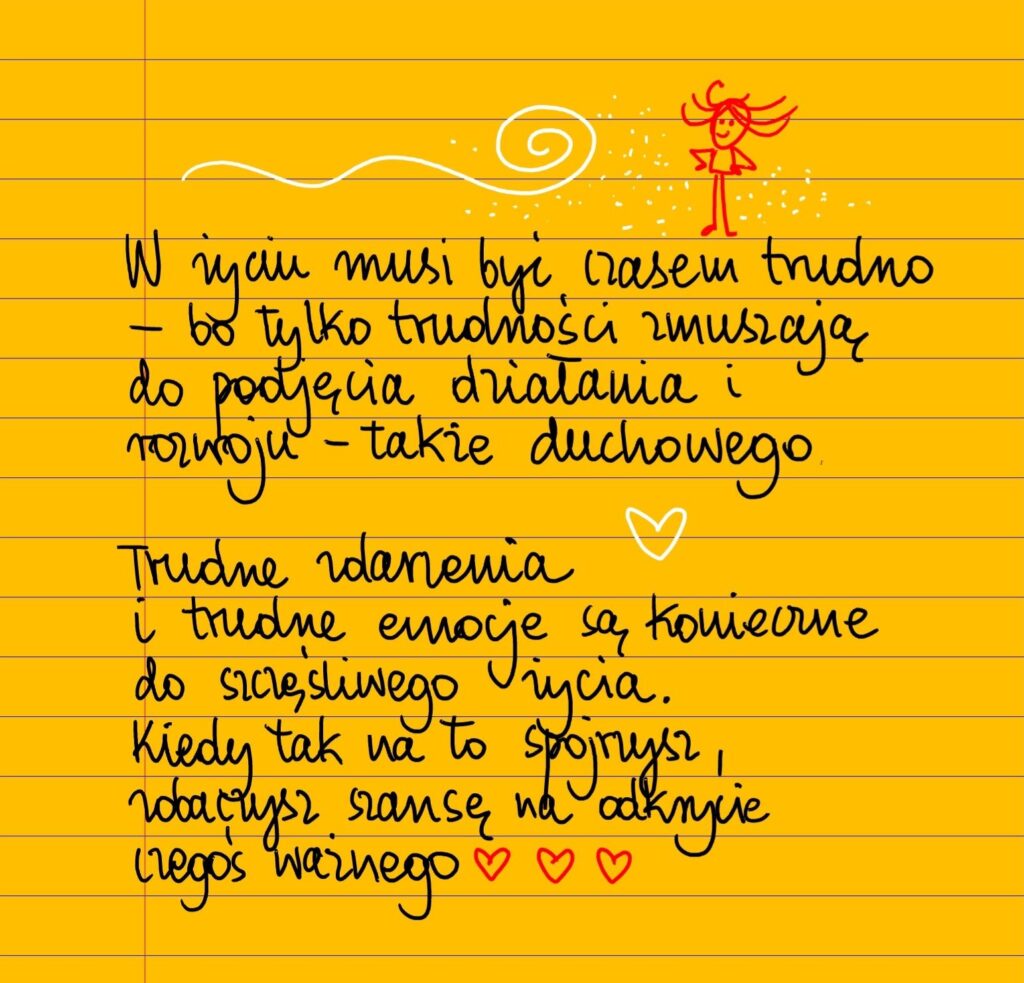 W życiu musi być czasem trudno
– bo tylko trudności zmuszają
do podjęcia działania i
rozwoju – także duchowego.
Trudne zdarzenia
i trudne emocje są konieczne
do szczęśliwego życia.
Kiedy tak na to spojrzysz,
zobaczysz szansę na odkrycie
czegoś ważnego